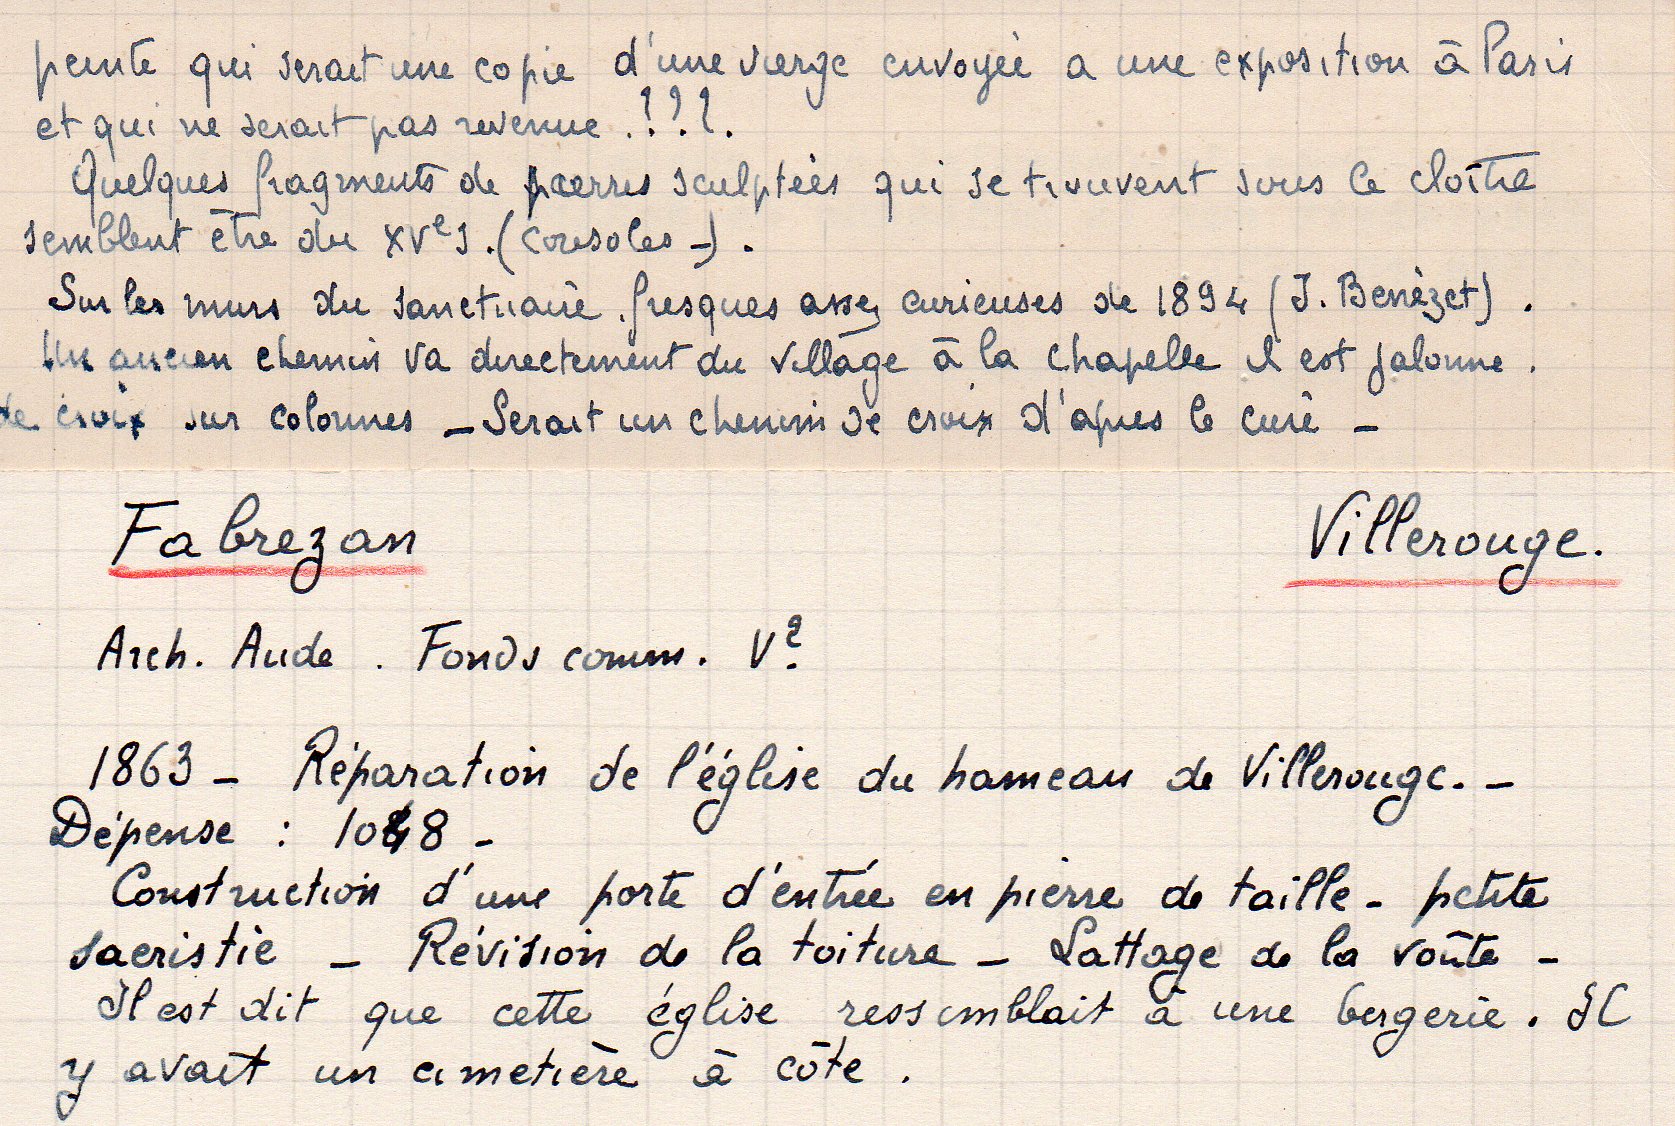 peinte qui serait une copie d'une vierge envoyée a une exposition à Paris
et qui ne serait pas revenue .!?.!.
Quelques fragments de pierres sculptées qui se trouvent sous le cloître
semblent être du XVe s. (consoles -) .
Sur les murs du sanctuaire . fresques assez curieuses de 1894 (J. Benèzet) .
Un ancien chemin va directement du village à la chapelle il est jalonne .
de croix sur colonnes - Serait un chemin de croix d'apres le curé -
Fabrezan Villerouge.
Arch. Aude . Fonds comm. V²
1863 - Réparation de l'église du hameau de Villerouge. -
Dépense : -
Construction d'une porte d'entrée en pierre de taille - petite
sacristie - Révision de la toiture - Lattage de la voûte -
Il est dit que cette église ressemblait à une bergerie . Il
y avait un cimetière à côte .